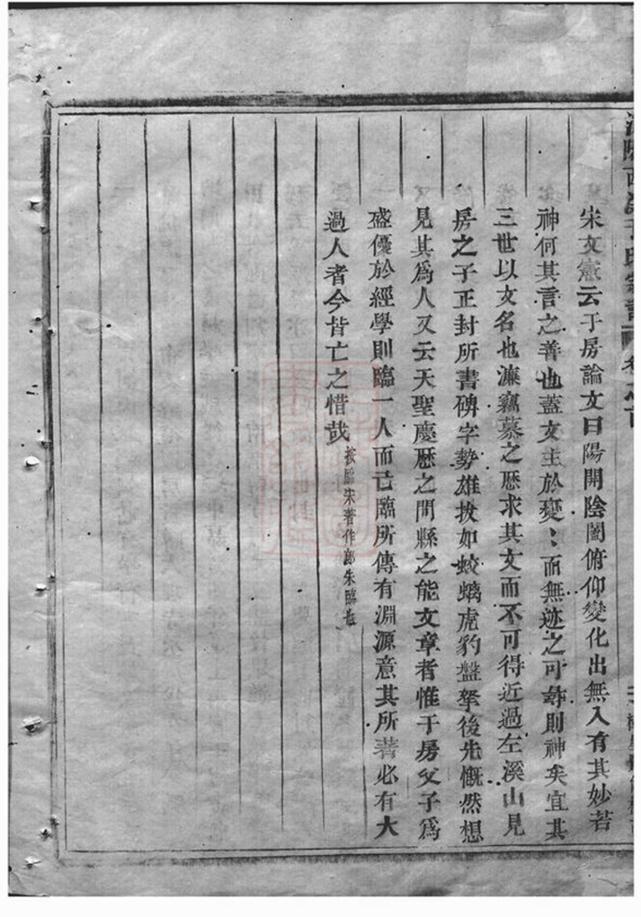 宋文憲云于房論文曰陽開陰闔俯仰變化出無入有其妙若
神何其言之善也蓋文主於變變而無迹之可尋則神矣宜其
三世以文名也濂竊慕之歷求其文而不可得近過左溪山見
房之子正封所書碑字勢雄拔如蛟螭虎豹盤拏後先慨然想
見其爲人又云天聖慶歷之間縣之能文章者惟于房父子爲
盛優於經學則臨一人而已臨所傳有淵源意其所著必有大
過人者今皆亡之惜哉
按臨宋著作郎朱臨也